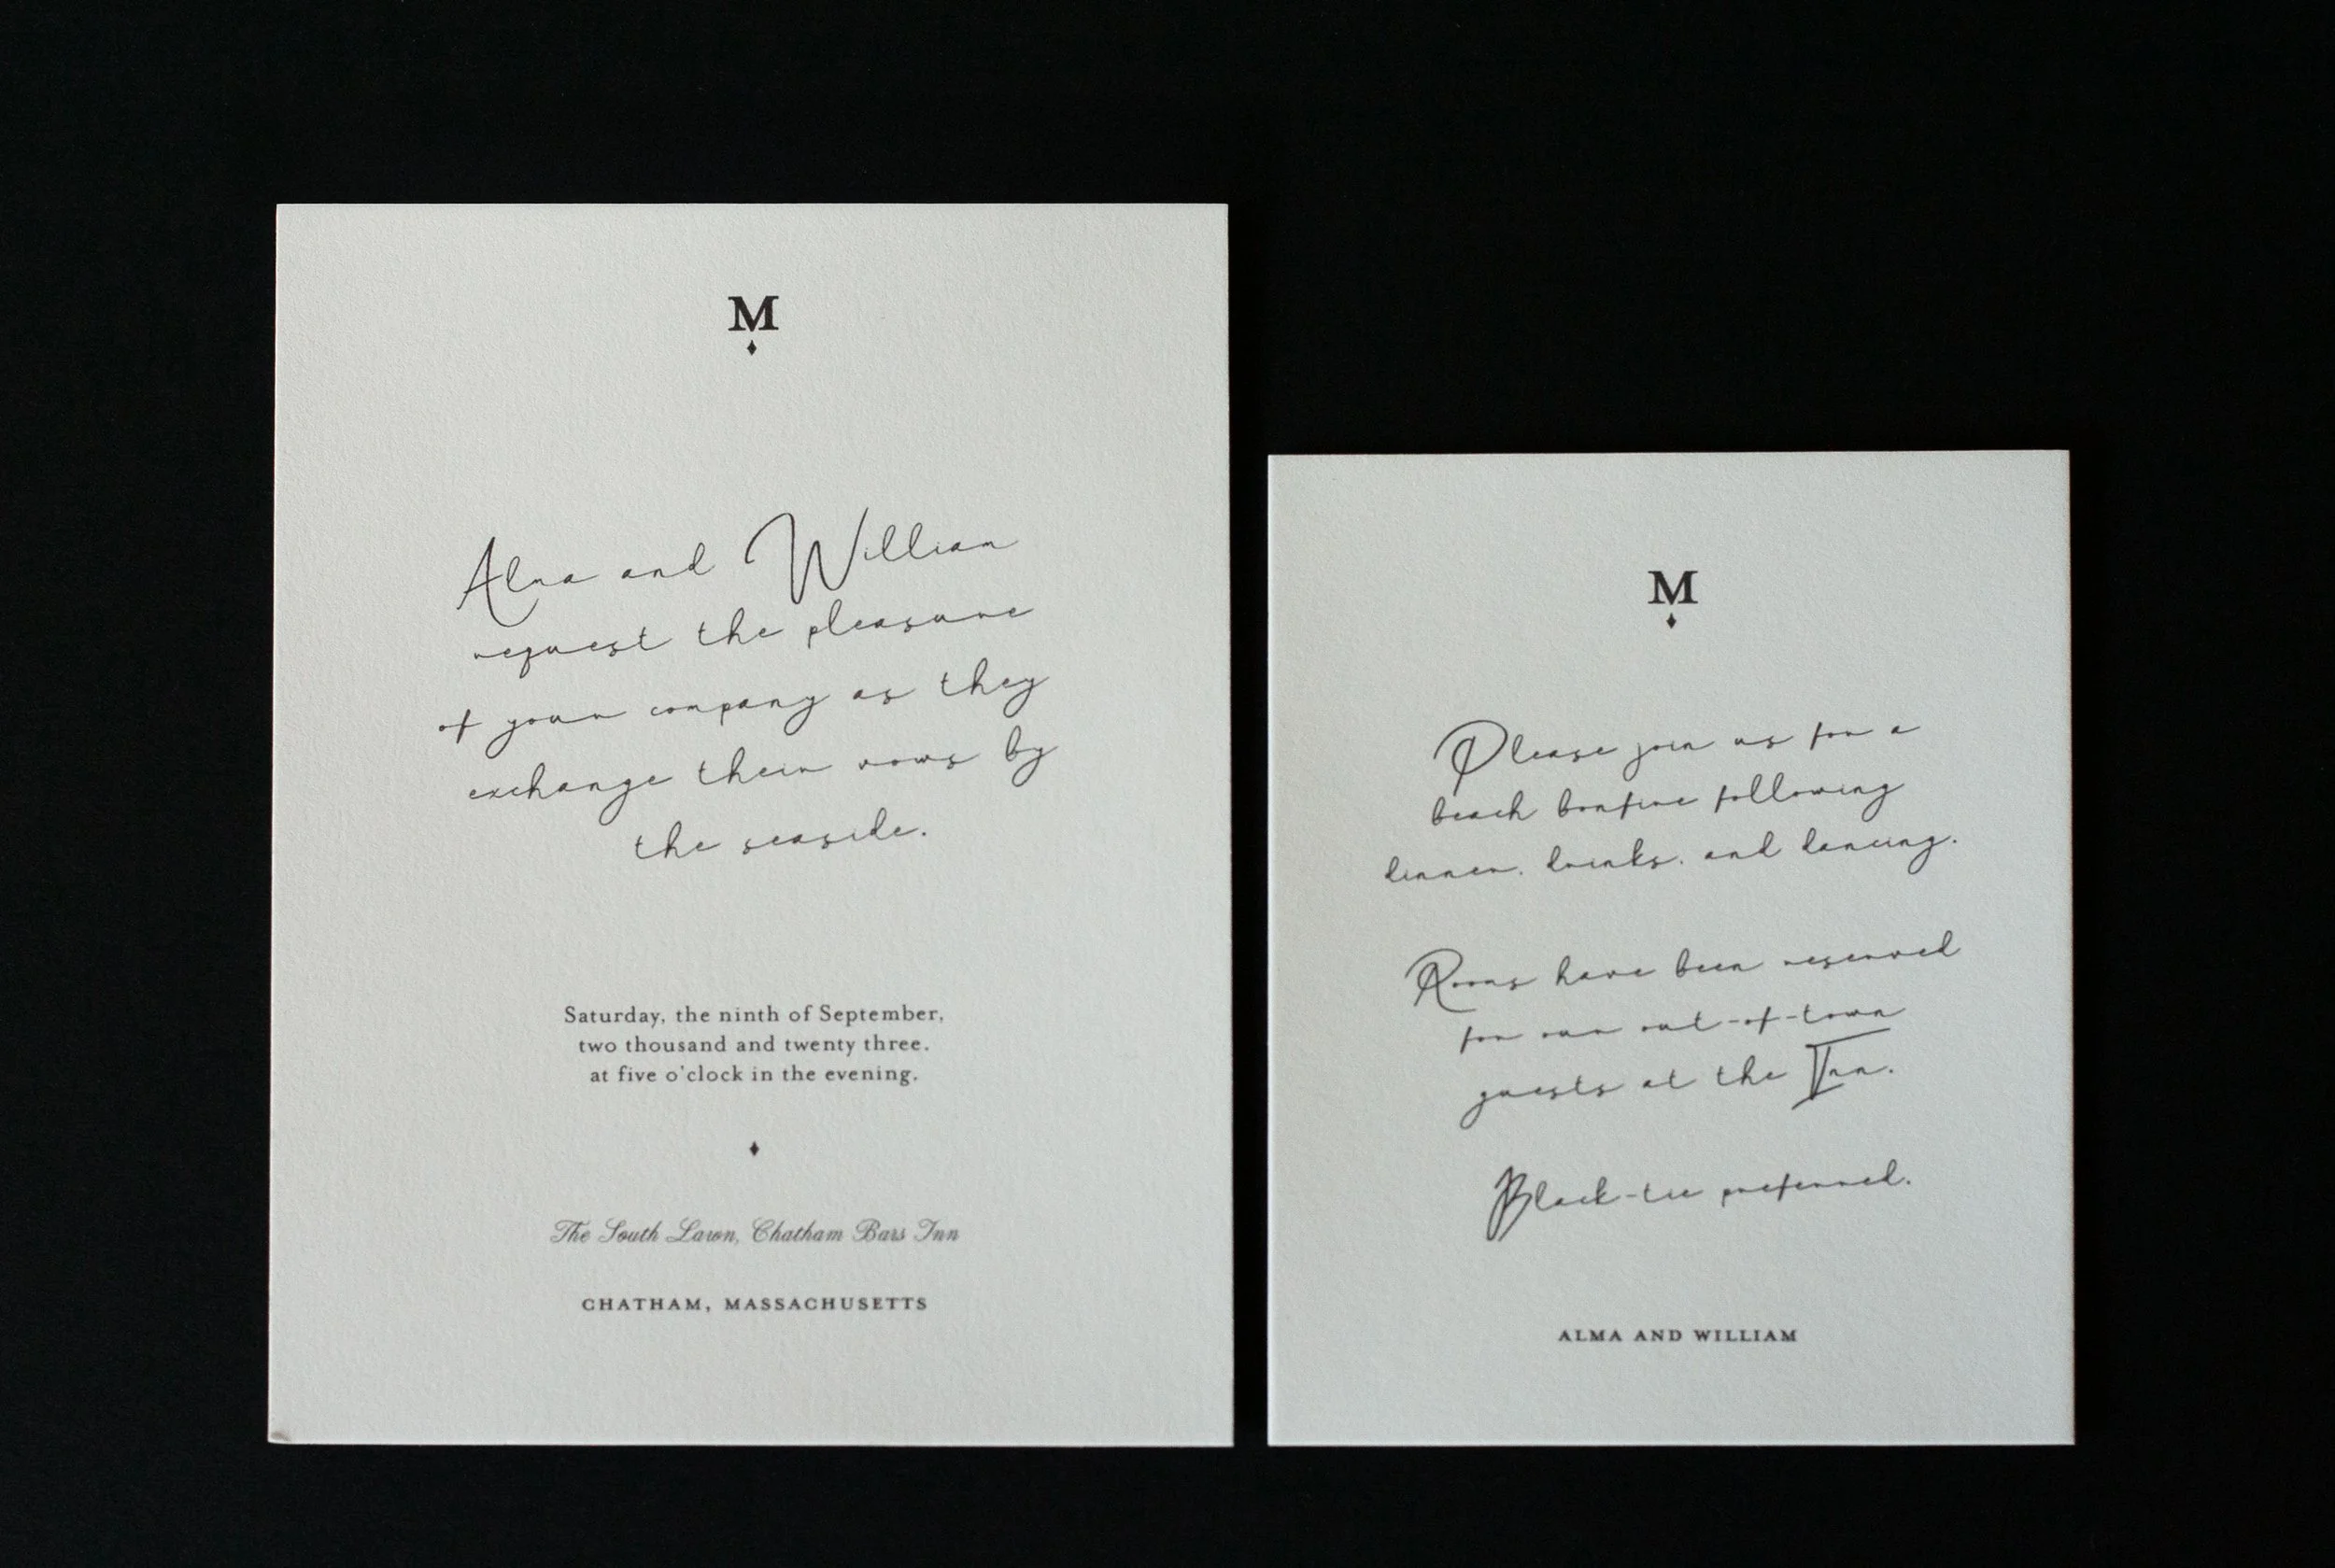 M
Alma and William
request the pleasure
of your company as they
exchange their vows by
the seaside.
Saturday, the ninth of September,
two thousand and twenty three.
at five o'clock in the evening.
The South Lawn, Chatham Bars Inn
CHATHAM, MASSACHUSETTS
M
Please join us for a
beach bonfire following
dinner, drinks, and dancing.
Rooms have been reserved
for our out-of-town
guests at the Inn.
Black-tie preferred.
ALMA AND WILLIAM